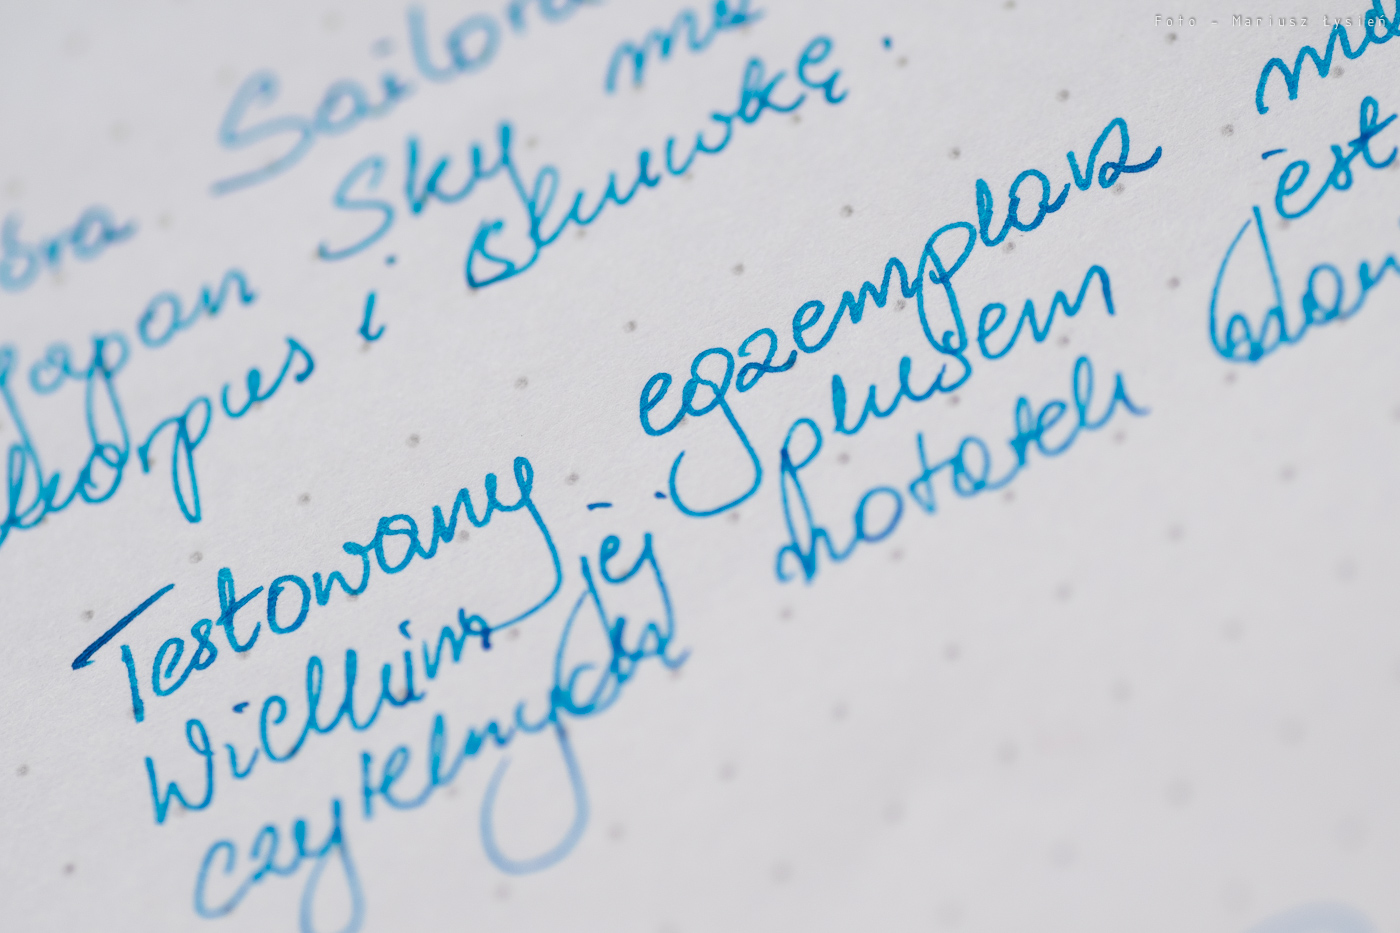 Foto - Mariusz Łysień
Sailor
óra Sky ma
Japan
korpus i skuwkę.
Testowany egzemplarz ma
Wielkim jej plusem jest
czytelnych notatek